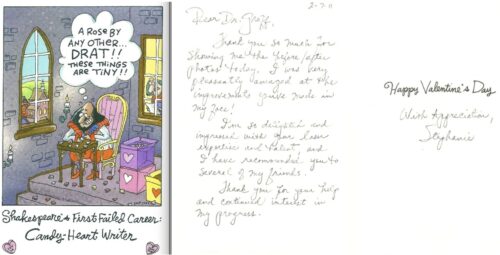 A ROSE BY
ANY OTHER...
DRAT!!
THESE THINGS
ARE TINY!!
Shakespeare's First Failed Career:
Candy-Heart Writer
Dear Dr.
Thank you so much for
showing me the before/after
photos today. I was very
pleasantly amazed at the
improvements you've made in
my face!
I'm so delighted and
impressed with your laser
expertise and talent, and
I have recommended you to
several of my friends.
Thank you for your help
and continued interest in
my progress.
Happy Valentine's Day
With Appreciation,
Stephanie